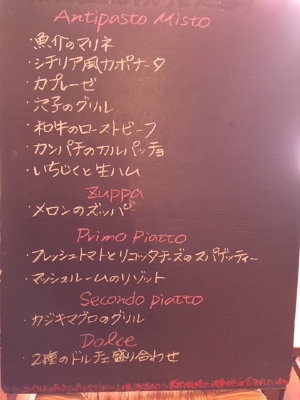 Antipasto Misto
・魚介のマリネ
・シチリア風カポナータ
・カプレーゼ
・穴子のグリル
・和牛のローストビーフ
・カンパチのカルパッチョ
・いちじくと生ハム
Zuppa
・メロンのズッパ
Primo Piatto
・フレッシュトマトとリコッタチーズのスパゲッティー
・マッシュルームのリゾット
Secondo piatto
・カジキマグロのグリル
Dolce
・2種のドルチェ盛り合わせ